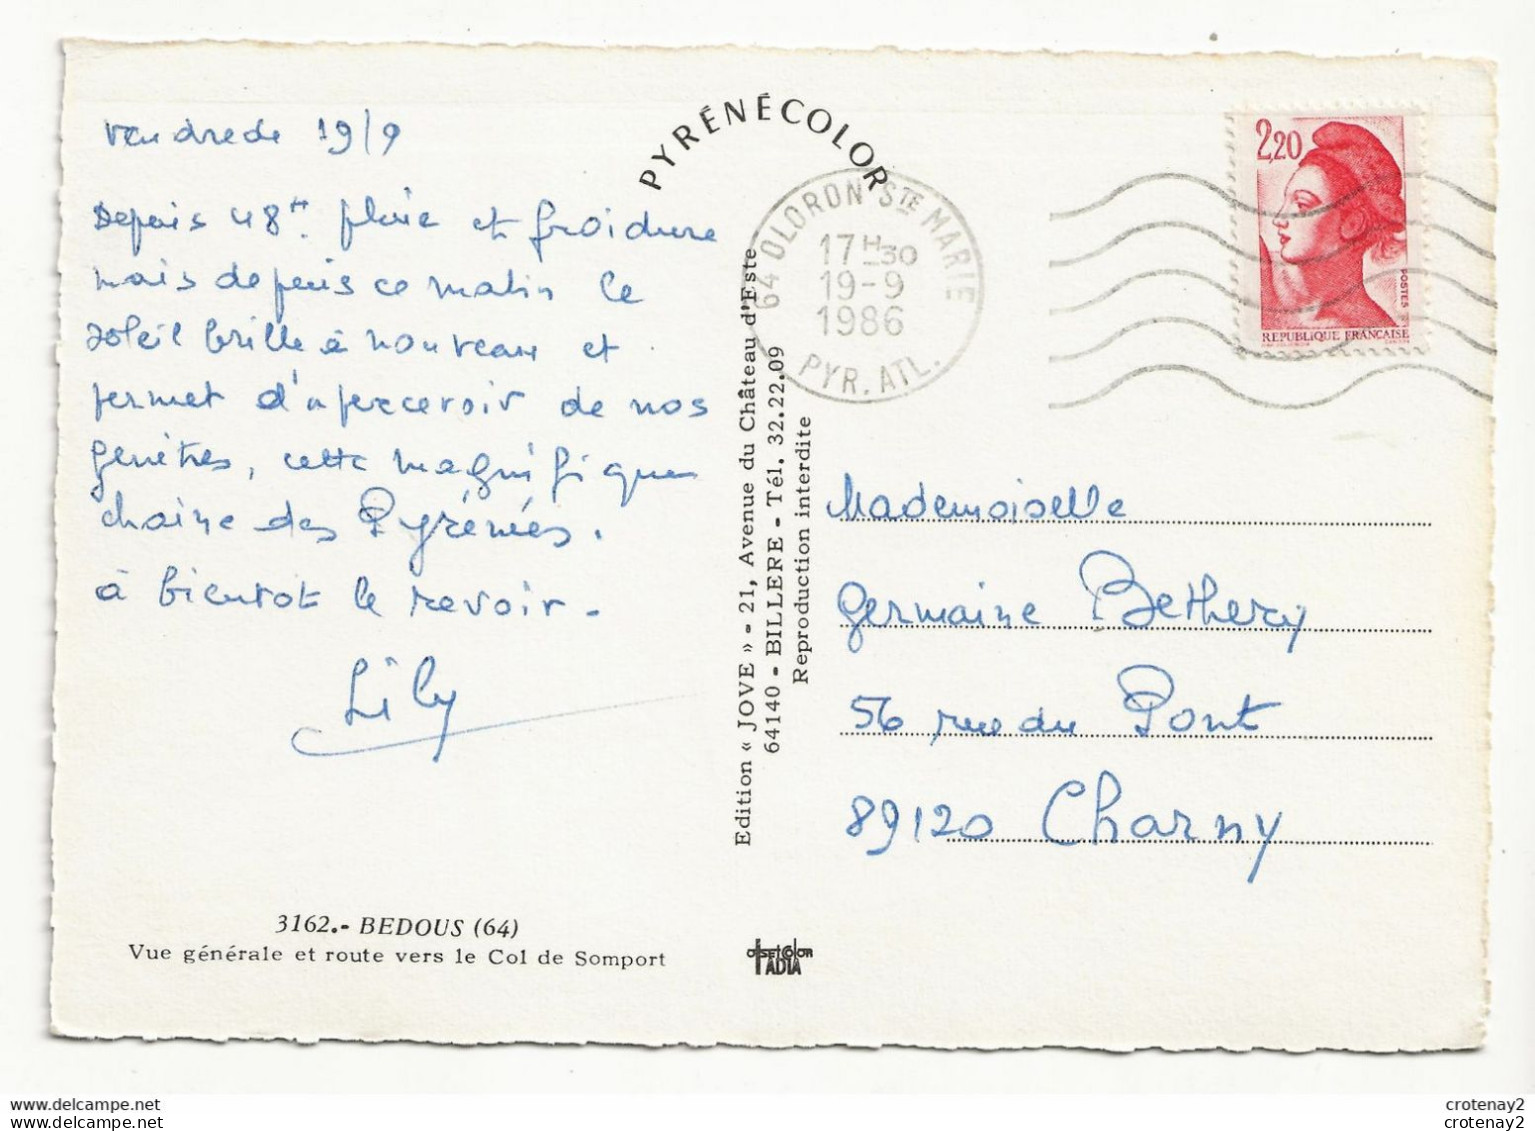 vendredi 19/9
Depuis 48H. pluie et froidure
mais depuis ce matin le
soleil brille à nouveau et
permet d'apercevoir de nos
fenêtres, cette magnifique
chaine des Pyrénées.
à bientot le revoir -
Lily
3162.- BEDOUS (64)
Vue générale et route vers le Col de Somport
PYRÉNÉCOLOR
Edition « JOVE » - 21, Avenue du Château d'Este
64140 - BILLERE - Tél. 32.22.09
Reproduction interdite
64 OLORON STE MARIE
17H30
19-9
1986
PYR. ATL.
2,20
POSTES
REPUBLIQUE FRANÇAISE
Mademoiselle
Germaine Bethery
56 rue du Pont
89120 Charny
OFFSET COLOR
IADIA
www.delcampe.net
www.delcampe.net
crotenay2
crotenay2